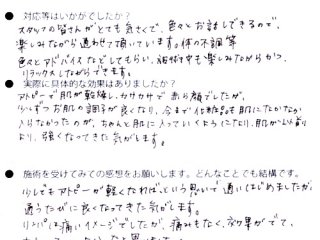 ● 対応等はいかがでしたか？
スタッフの皆さんがとても気さくで、色々とお話しできるので、
楽しみながら通わせて頂いています。体の不調等
色々とアドバイスなどしてもらい、施術中も楽しみながらかつ
リラックスしながらできます。
● 実際に具体的な効果はありましたか？
アトピーで肌が乾燥し、カサカサで赤ら顔でしたが、
少しずつお肌の調子が良くなり、今まで化粧品も肌になかなか
入らなかったのが、ちゃんと肌に入っていくようになり、肌が以前
より、強くなってきた気がします。
● 施術を受けてみての感想をお願いします。どんなことでも結構です。
少しでもアトピーが軽くなれば、という思いで通いはじめましたが、
通うたびに良くなってきた気がします。
は痛いイメージでしたが、痛みもなく、効果がでて、